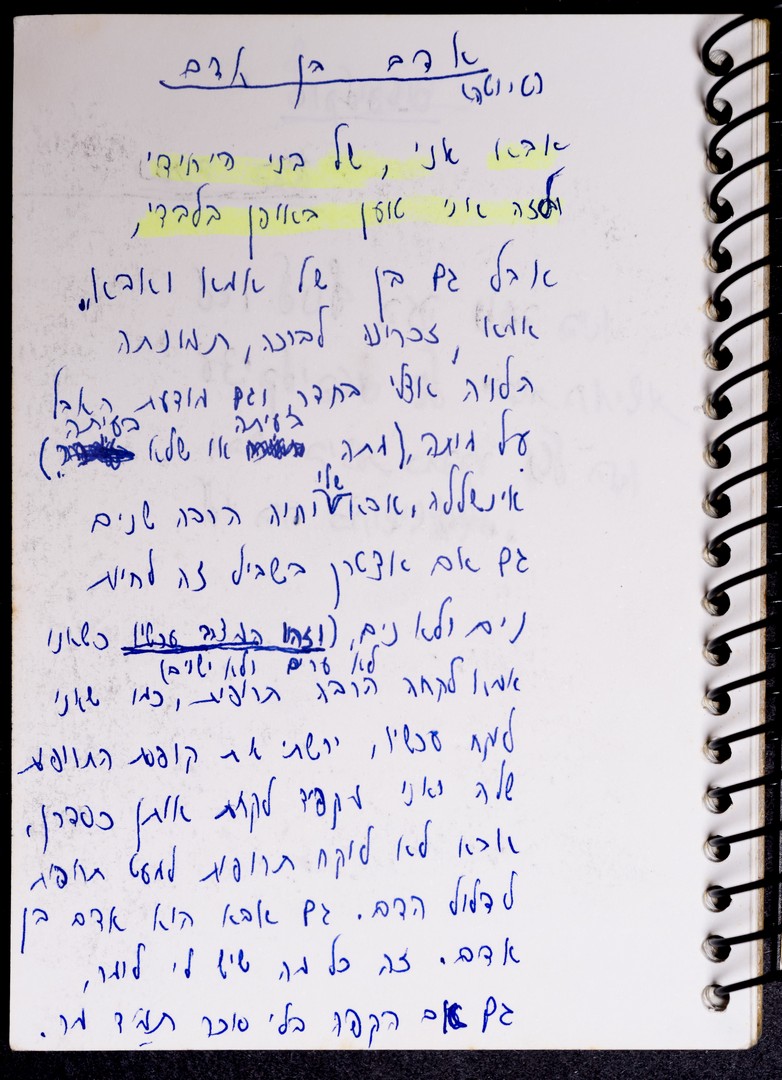 אדם בן אדם
(טיוטה)
אבא אני, של בני היחידי
ולזה אני טוען באופן בלבדי,
אבל גם בן של אמא ואבא,,
אמא, זכרינה לברכה, תמונתה
תלויה אצלי בחדר וגם מודעת האבל
בעיתה בעיתה
על מיתה, (מתה או שלא )
שלי
אינשללה, אבא יחיה הרבה שנים
גם אם אצטרך בשביל זה לחיות
נים ולא נים, (וזהו המצב עכשיו כשאני
לא ערים ולא ישנים)
אמא לקחה הרבה תרופות, כמו שאני
לוקח עכשיו, ירשתי את קופסת התרופות
שלה ואני מקפיד לקחת אותן כסדרן,
אבא לא לוקח תרופות למעט תרופות
לדלול הדם. גם אבא הוא אדם בן
אדם. זה כל מה שיש לי לומר,
גם אם הקפה בלי סוכר תמיד מר.